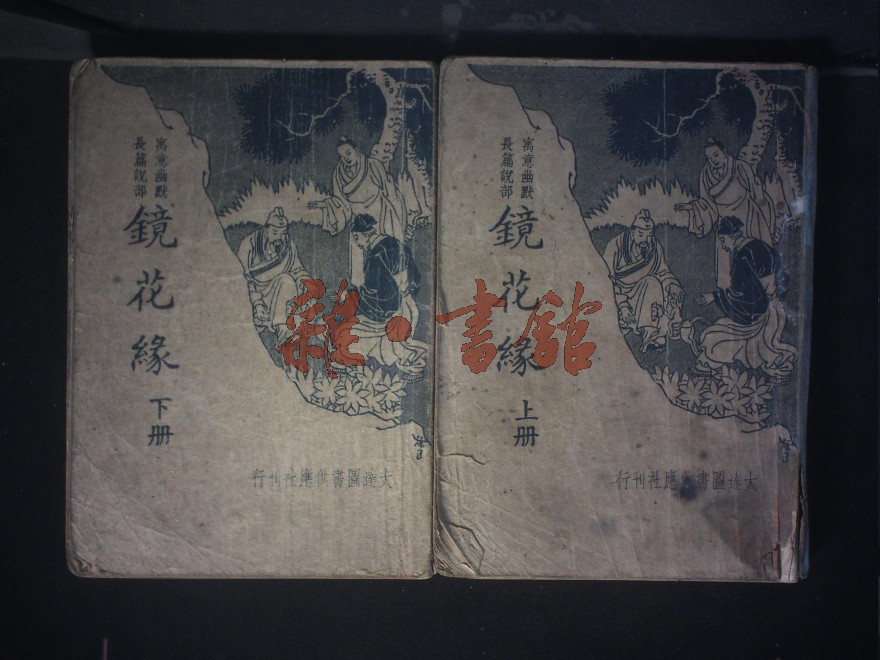 寓意幽默
長篇說部
鏡花緣
上册
大達圖書供應社刊行
寓意幽默
長篇說部
鏡花緣
下册
大達圖書供應社刊行
雜·書館